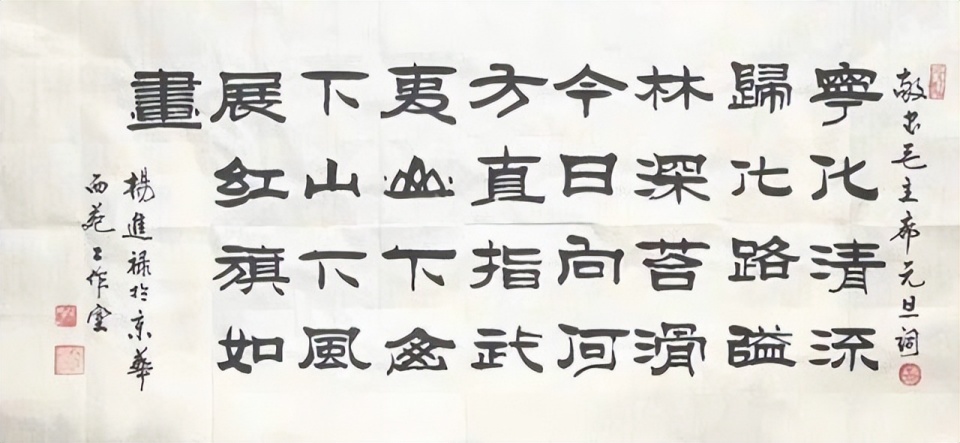 敬书毛主席元旦词
寧化清流
歸化路隘
林深苔滑
今日向何
方直指武
夷山下山
下山下風
展红旗如
畫
楊進禄於京華
西苑工作室